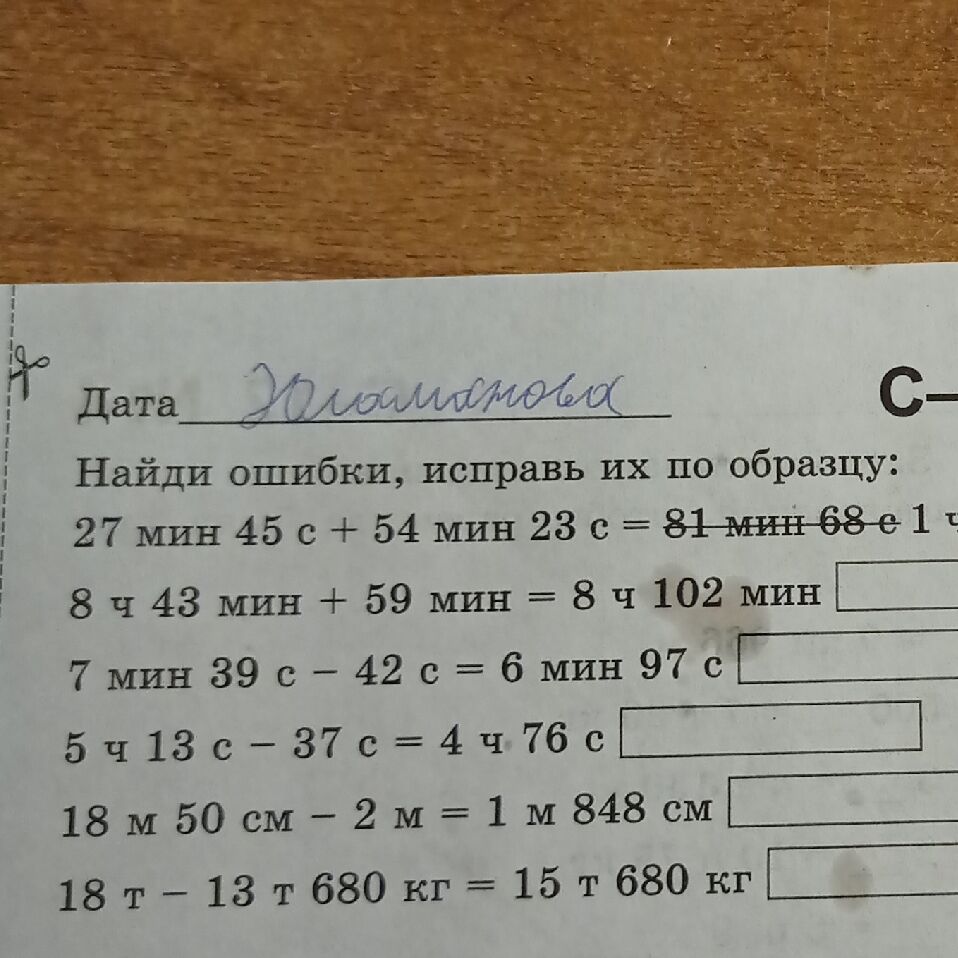 Дата Юламанова
С–
Найди ошибки, исправь их по образцу:
27 мин 45 с + 54 мин 23 с = 81 мин 68 с 1 ч
8 ч 43 мин + 59 мин = 8 ч 102 мин
7 мин 39 с – 42 с = 6 мин 97 с
5 ч 13 с – 37 с = 4 ч 76 с
18 м 50 см – 2 м = 1 м 848 см
18 т – 13 т 680 кг = 15 т 680 кг